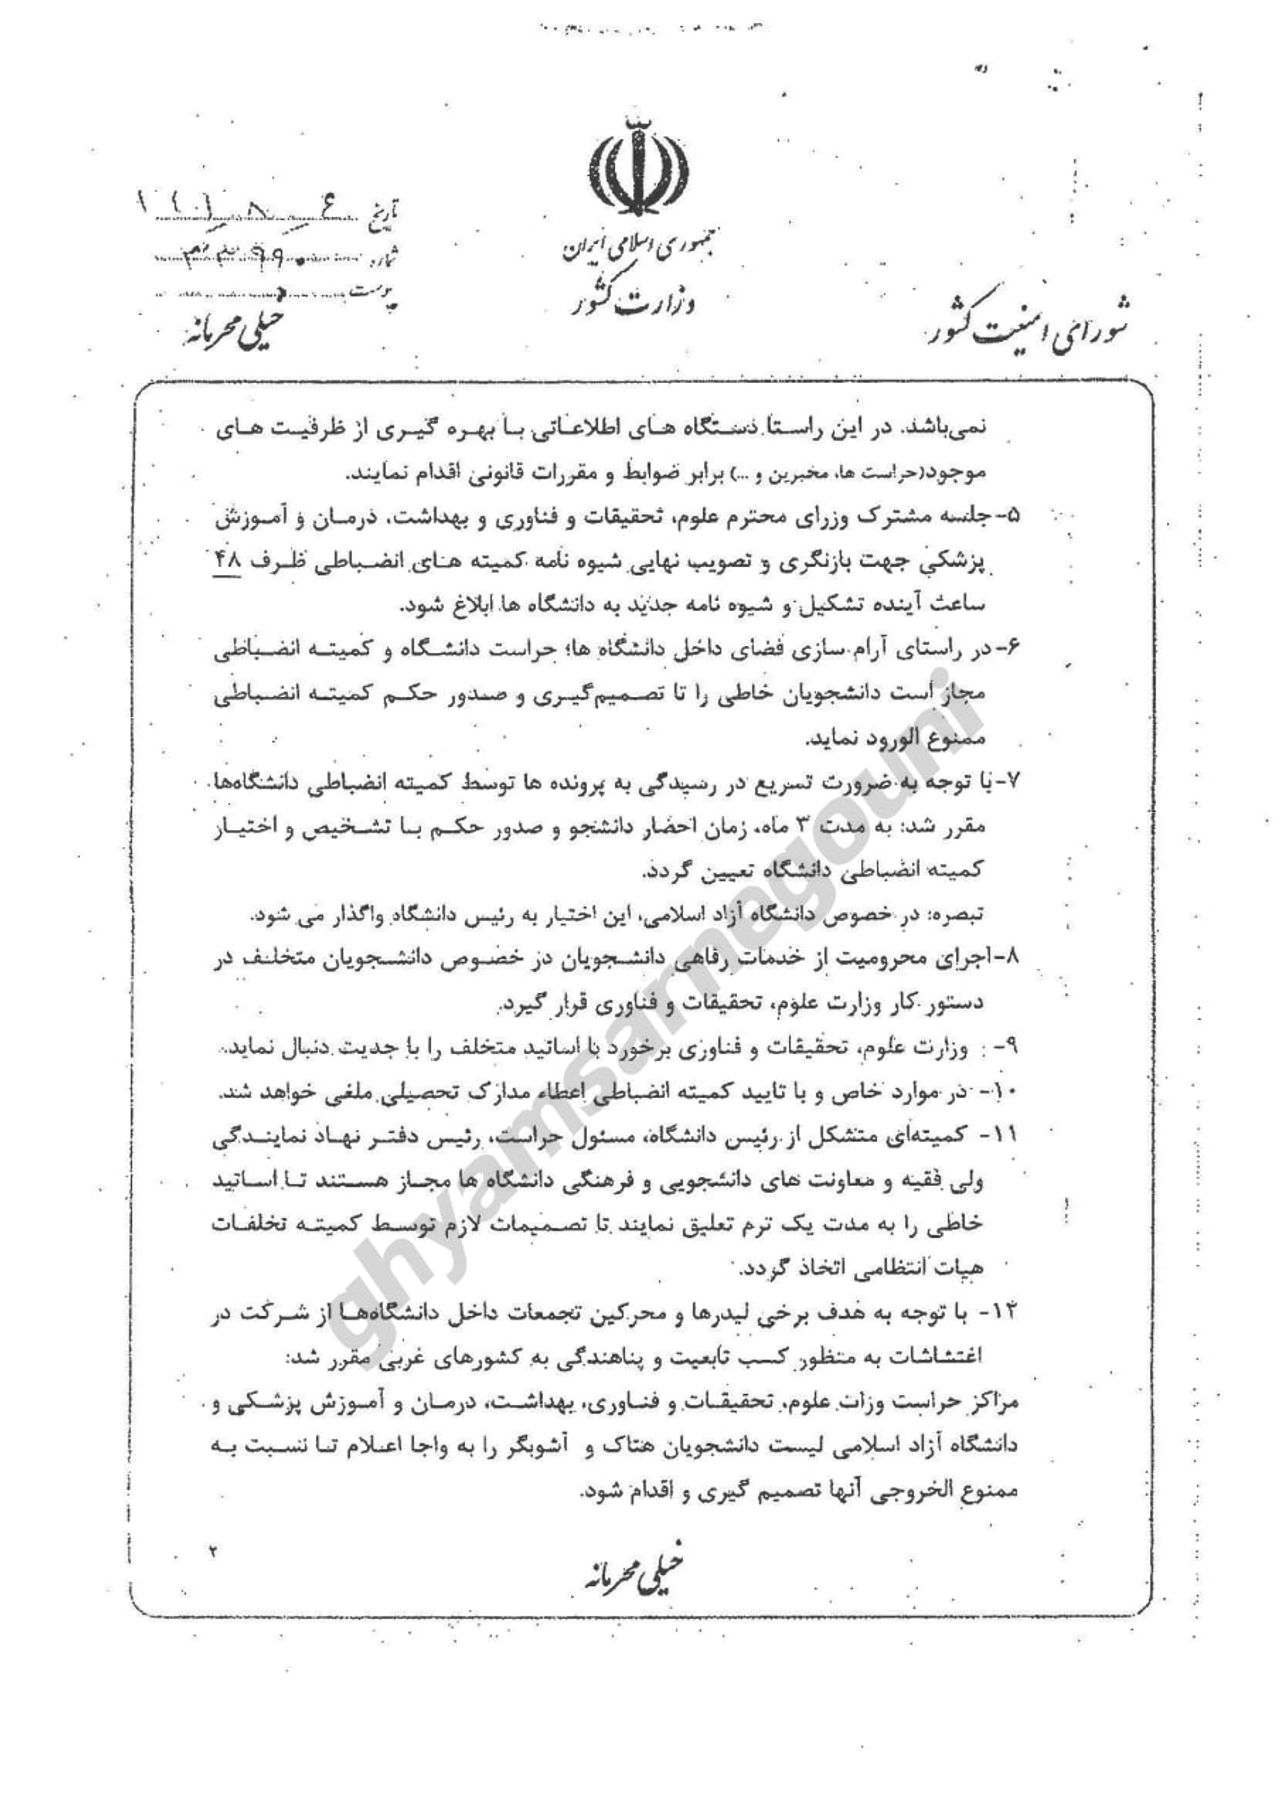 جمهوری اسلامی ایران
وزارت کشور
شورای امنیت کشور
تاریخ ۱۴۰۱/۸/۶
شماره
پیوست
خیلی محرمانه
نمی‌باشد. در این راستا دستگاه های اطلاعاتی با بهره گیری از ظرفیت های
موجود(حراست ها، مخبرین و ...) برابر ضوابط و مقررات قانونی اقدام نمایند.
۵-جلسه مشترک وزرای محترم علوم، تحقیقات و فناوری و بهداشت، درمان و آموزش
پزشکی جهت بازنگری و تصویب نهایی شیوه نامه کمیته های انضباطی ظرف ۴۸
ساعت آینده تشکیل و شیوه نامه جدید به دانشگاه ها ابلاغ شود.
۶-در راستای آرام سازی فضای داخل دانشگاه ها؛ حراست دانشگاه و کمیته انضباطی
مجاز است دانشجویان خاطی را تا تصمیم‌گیری و صدور حکم کمیته انضباطی
ممنوع الورود نماید.
۷-با توجه به ضرورت تسریع در رسیدگی به پرونده ها توسط کمیته انضباطی دانشگاه‌ها
مقرر شد: به مدت ۳ ماه، زمان احضار دانشجو و صدور حکم با تشخیص و اختیار
کمیته انضباطی دانشگاه تعیین گردد.
تبصره: در خصوص دانشگاه آزاد اسلامی، این اختیار به رئیس دانشگاه واگذار می شود.
۸-اجرای محرومیت از خدمات رفاهی دانشجویان در خصوص دانشجویان متخلف در
دستور کار وزارت علوم، تحقیقات و فناوری قرار گیرد.
۹- وزارت علوم، تحقیقات و فناوری برخورد با اساتید متخلف را با جدیت دنبال نماید.
۱۰- در موارد خاص و با تایید کمیته انضباطی اعطاء مدارک تحصیلی ملغی خواهد شد.
۱۱- کمیته‌ای متشکل از رئیس دانشگاه، مسئول حراست، رئیس دفتر نهاد نمایندگی
ولی فقیه و معاونت های دانشجویی و فرهنگی دانشگاه ها مجاز هستند تا اساتید
خاطی را به مدت یک ترم تعلیق نمایند تا تصمیمات لازم توسط کمیته تخلفات
هیات انتظامی اتخاذ گردد.
۱۲- با توجه به هدف برخی لیدرها و محرکین تجمعات داخل دانشگاه‌ها از شرکت در
اغتشاشات به منظور کسب تابعیت و پناهندگی به کشورهای غربی مقرر شد:
مراکز حراست وزات علوم، تحقیقات و فناوری، بهداشت، درمان و آموزش پزشکی و
دانشگاه آزاد اسلامی لیست دانشجویان هتاک و آشوبگر را به واجا اعلام تا نسبت به
ممنوع الخروجی آنها تصمیم گیری و اقدام شود.
۲
خیلی محرمانه
ghyamsarnegouni